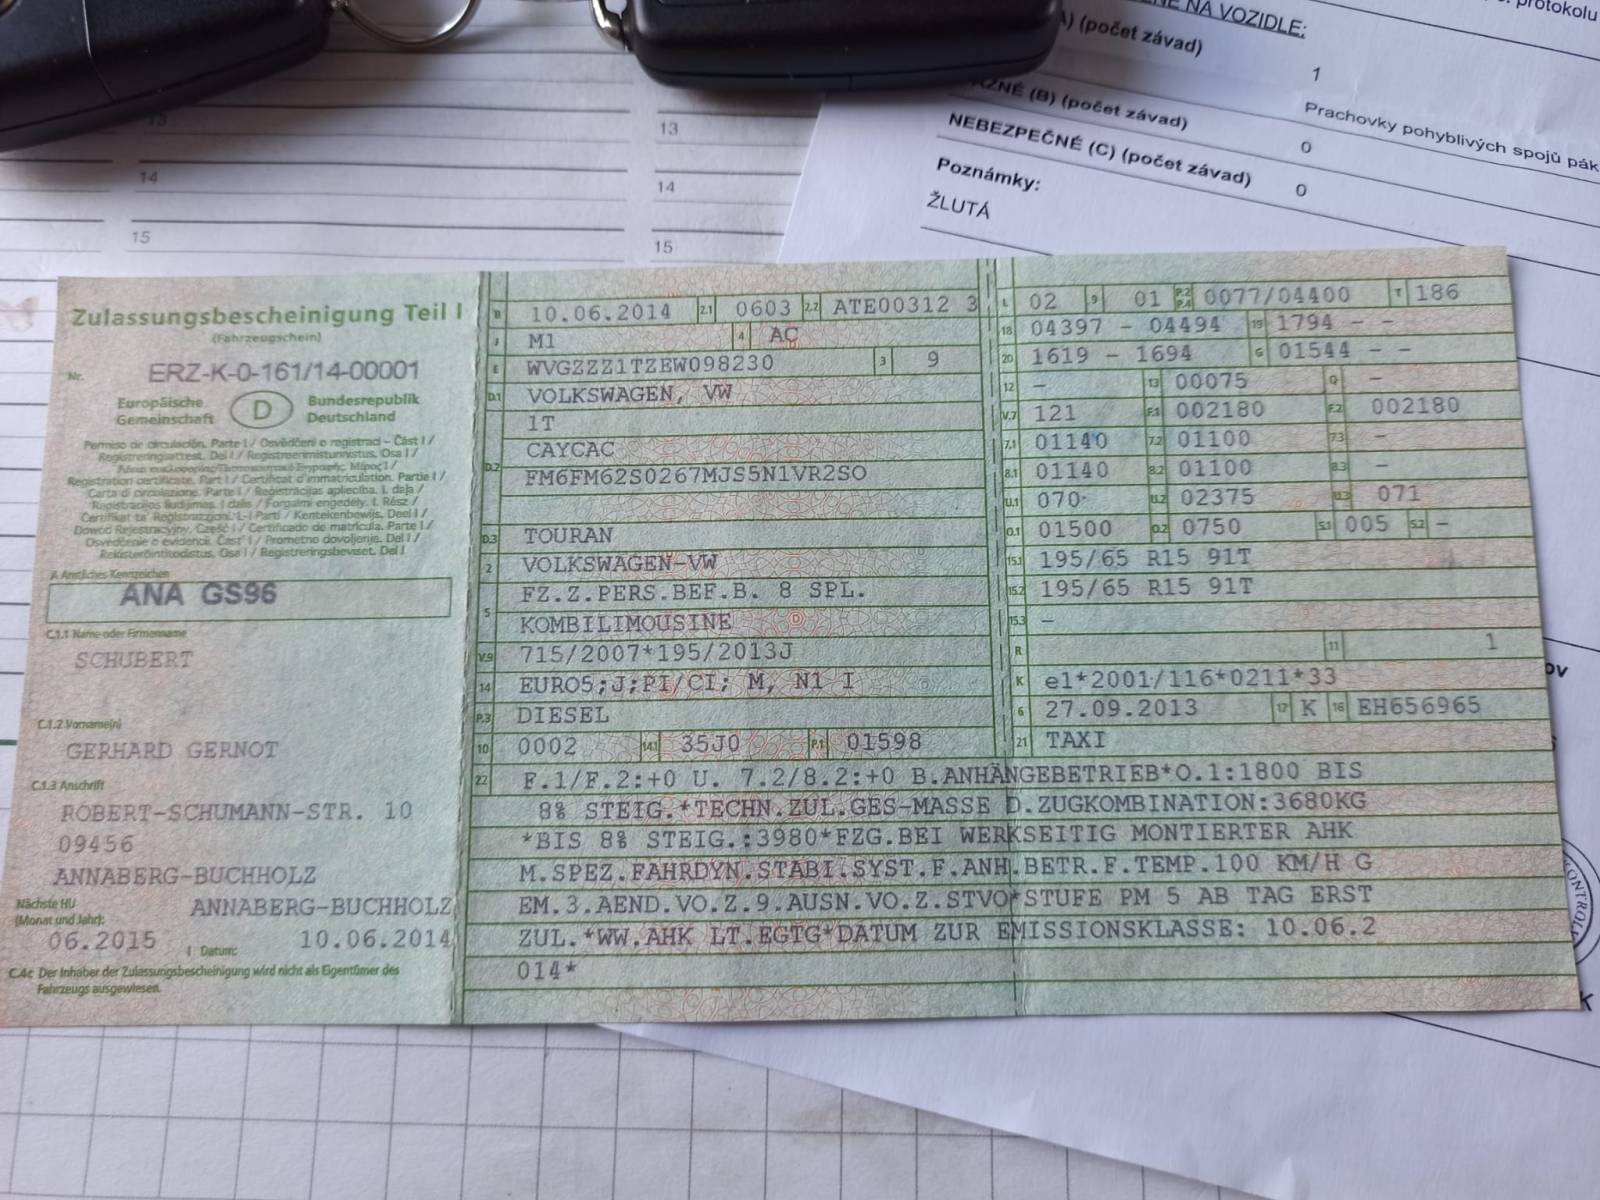 . protokolu
NÉ NA VOZIDLE:
) (počet závad)
1
Prachovky pohyblivých spojů pák
(B) (počet závad)
0
NEBEZPEČNÉ (C) (počet závad)
0
Poznámky:
ŽLUTÁ
13
13
14
14
15
15
Zulassungsbescheinigung Teil I
(Fahrzeugschein)
Nr. ERZ-K-0-161/14-00001
Europäische Gemeinschaft D Bundesrepublik Deutschland
Permiso de circulación. Parte I / Osvědčení o registraci – Část I /
Registreringsattest. Del I / Registreerimistunnistus. Osa I /
Registration certificate. Part I / Certificat d'immatriculation. Partie I /
Carta di circolazione. Parte I / Reģistrācijas apliecība. I. daļa /
Registracijos liudijimas. I dalis / Forgalmi engedély. I. Rész /
Dowód Rejestracyjny. Część I / Certificado de matrícula. Parte I /
Osvedčenie o evidencii. Časť I / Prometno dovoljenje. Del I /
Rekisteröintitodistus. Osa I / Registreringsbeviset. Del I
A Amtliches Kennzeichen
ANA GS96
C.1.1 Name oder Firmenname
SCHUBERT
C.1.2 Vorname(n)
GERHARD GERNOT
C.1.3 Anschrift
ROBERT-SCHUMANN-STR. 10
09456
ANNABERG-BUCHHOLZ
Nächste HU
(Monat und Jahr):
ANNABERG-BUCHHOLZ
06.2015 I Datum: 10.06.2014
C.4c Der Inhaber der Zulassungsbescheinigung wird nicht als Eigentümer des
Fahrzeugs ausgewiesen.
B 10.06.2014 2.1 0603 2.2 ATE00312 3
J M1 4 AC
E WVGZZZ1TZEW098230 3 9
D.1 VOLKSWAGEN, VW
1T
D.2 CAYCAC
FM6FM62S0267MJS5N1VR2SO
D.3 TOURAN
2 VOLKSWAGEN-VW
5 FZ.Z.PERS.BEF.B. 8 SPL.
KOMBILIMOUSINE
V.9 715/2007*195/2013J
14 EURO5;J;PI/CI; M, N1 I
P.3 DIESEL
10 0002 14.1 35J0 P.1 01598
L 02 9 01 P.2 P.4 0077/04400 T 186
18 04397 - 04494 19 1794 - -
20 1619 - 1694 G 01544 - -
12 - 13 00075 Q -
V.7 121 F.1 002180 F.2 002180
7.1 01140 7.2 01100 7.3 -
8.1 01140 8.2 01100 8.3 -
U.1 070 U.2 02375 U.3 071
O.1 01500 O.2 0750 S.1 005 S.2 -
15.1 195/65 R15 91T
15.2 195/65 R15 91T
15.3 -
R 11 1
K e1*2001/116*0211*33
6 27.09.2013 17 K 16 EH656965
21 TAXI
22 F.1/F.2:+0 U. 7.2/8.2:+0 B.ANHÄNGEBETRIEB*O.1:1800 BIS
8% STEIG.*TECHN.ZUL.GES-MASSE D.ZUGKOMBINATION:3680KG
*BIS 8% STEIG.:3980*FZG.BEI WERKSEITIG MONTIERTER AHK
M.SPEZ.FAHRDYN.STABI.SYST.F.ANH.BETR.F.TEMP.100 KM/H G
EM.3.AEND.VO.Z.9.AUSN.VO.Z.STVO*STUFE PM 5 AB TAG ERST
ZUL.*WW.AHK LT.EGTG*DATUM ZUR EMISSIONSKLASSE: 10.06.2
014*